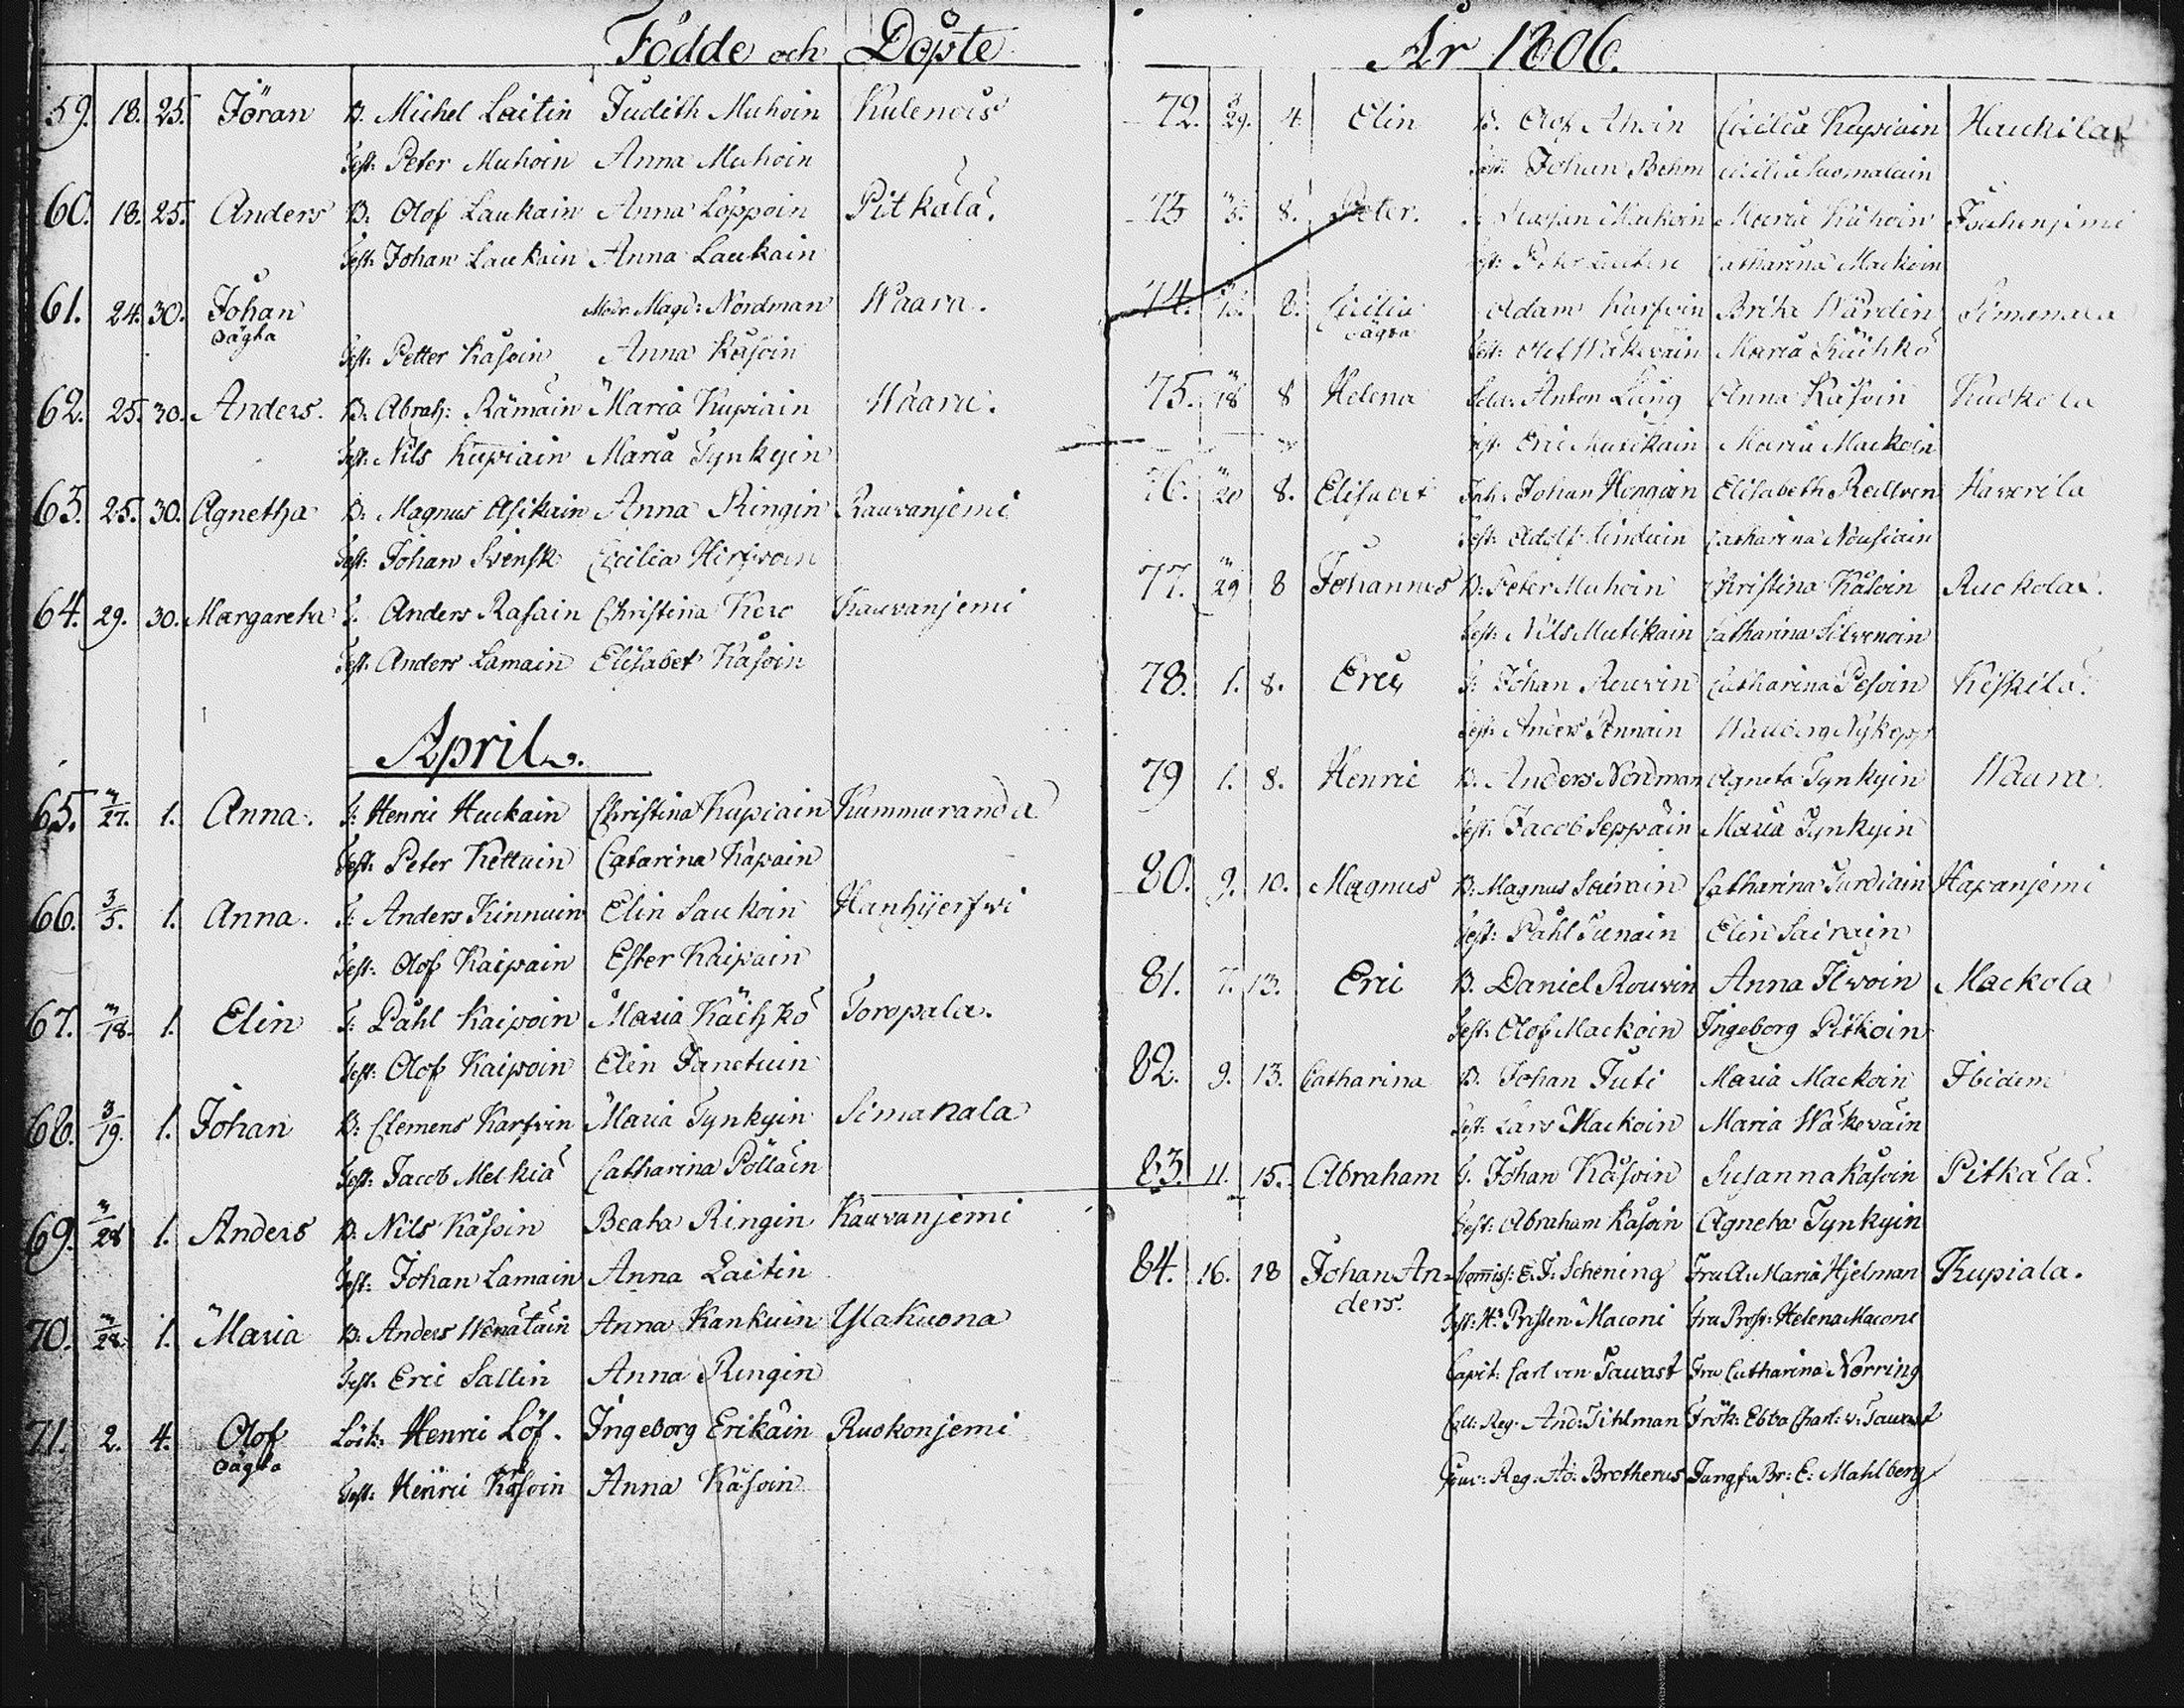 Födde och Döpte
59. 18. 25. Jöran B. Michel Laitin Judith Muhoin Kulenois
Test: Peter Muhoin Anna Muhoin
60. 18. 25. Anders B. Olof Laukain Anna Loppoin Pitkälä.
Test: Johan Laukain Anna Laukain
61. 24. 30. Johan Modr. Magd: Nordman Waara.
oägta
Test: Petter Käsoin Anna Käsoin
62. 25. 30. Anders. B. Abrah: Rämäin Maria Kupiain Waara.
Test: Nils Kupiain Maria Tynkyin
63. 25. 30. Agnetha B. Magnus Asikain Anna Ringin Rauvanjemi
Test: Johan Svensk Cecilia Hirfvoin
64. 29. 30. Margareta I. Anders Rasain Christina Kero Kauvanjemi
Test: Anders Lamain Elisabet Käsoin
April.
65. 3/27. 1. Anna. I: Henric Huckain Christina Kupiain Kummuranda
Test: Peter Kettuin Catarina Kapain
66. 3/5. 1. Anna. I: Anders Kinnuin Elin Saukoin Hanhijerfwi
Test: Olof Kaipain Ester Kaipain
67. 3/18. 1. Elin I: Påhl Kaipoin Maria Käihkö Toropala.
Test: Olof Kaipoin Elin Janctuin
68. 3/19. 1. Johan B: Clemens Karfvin Maria Tynkyin Simanala
Test: Jacob Melkiä Catharina Pölläin
69. 3/28 1. Anders B. Nils Käsoin Beata Ringin Kauvanjemi
Test: Johan Lamain Anna Laitin
70. 3/28. 1. Maria B: Anders Wenäläin Anna Kankuin Ylakuona
Test: Eric Sallin Anna Ringin
71. 2. 4. Olof Löik: Henric Löf. Ingeborg Erikäin Ruokonjemi
oägta
Test: Henric Käsoin Anna Käsoin
År 1806.
72. 3/29. 4. Elin B. Olof Ahoin Cicilia Kupiain Haukila
Test: Johan Behm Cicilia Suomalain
73 3/5. 8. Peter. Mackoin Maria Kuhoin
Test: Peter Catharina Mackoin
74. 3/15. 8. Cicilia Adam Karfvin Brita Wärdin Simanala
oägta
Test: Olof Wäkeväin Maria Käihkö
75. 3/18 8 Helena Sold: Anton Ljung Anna Käsoin Ruokola
Test: Eric Mutikain Maria Mackoin
76. 3/20 8. Elisabet Inh: Johan Hongoin Elisabeth Rellven Haverila
Test: Adolf Linduin Catharina Nousiain
77. 3/29 8 Johannes B: Peter Muhoin Christina Käsoin Ruokola.
Test: Nils Mutikain Catharina Silvenoin
78. 1. 8. Eric I: Johan Rouvin Catharina Pesoin Keskilä.
Test: Anders Pennain Walborg Nykopp
79 1. 8. Henric B. Anders Nordman Agneta Tynkyin Waara.
Test: Jacob Seppäin Maria Tynkyin
80. 9. 10. Magnus B: Magnus Sairain Catharina Turdiain Hapanjemi
Test: Påhl Tienain Elin Sairain
81. 7. 13. Eric B. Daniel Rouvin Anna Ilvoin Mackola
Test: Olof Mackoin Ingeborg Pitkoin
82. 9. 13. Catharina B. Johan Tuti Maria Mackoin Ibidem
Test: Lars Mackoin Maria Wäkeväin
83. 11. 15. Abraham I. Johan Käsoin Susanna Käsoin Pitkälä.
Test: Abraham Käsoin Agneta Tynkyin
84. 16. 18 Johan An- Commiss: E. J. Schening Fru A. Maria Hjelman Kupiala.
ders.
Test: Hr Prosten Maconi Fru Prost: Helena Maconi
Capit: Carl von Tawast Fru Catharina Norring
Coll: Reg. And: Tihlman Frök: Ebba Charl: v: Tawast
Reg. Ad: Brotherus Jungf. Br: E: Mahlberg